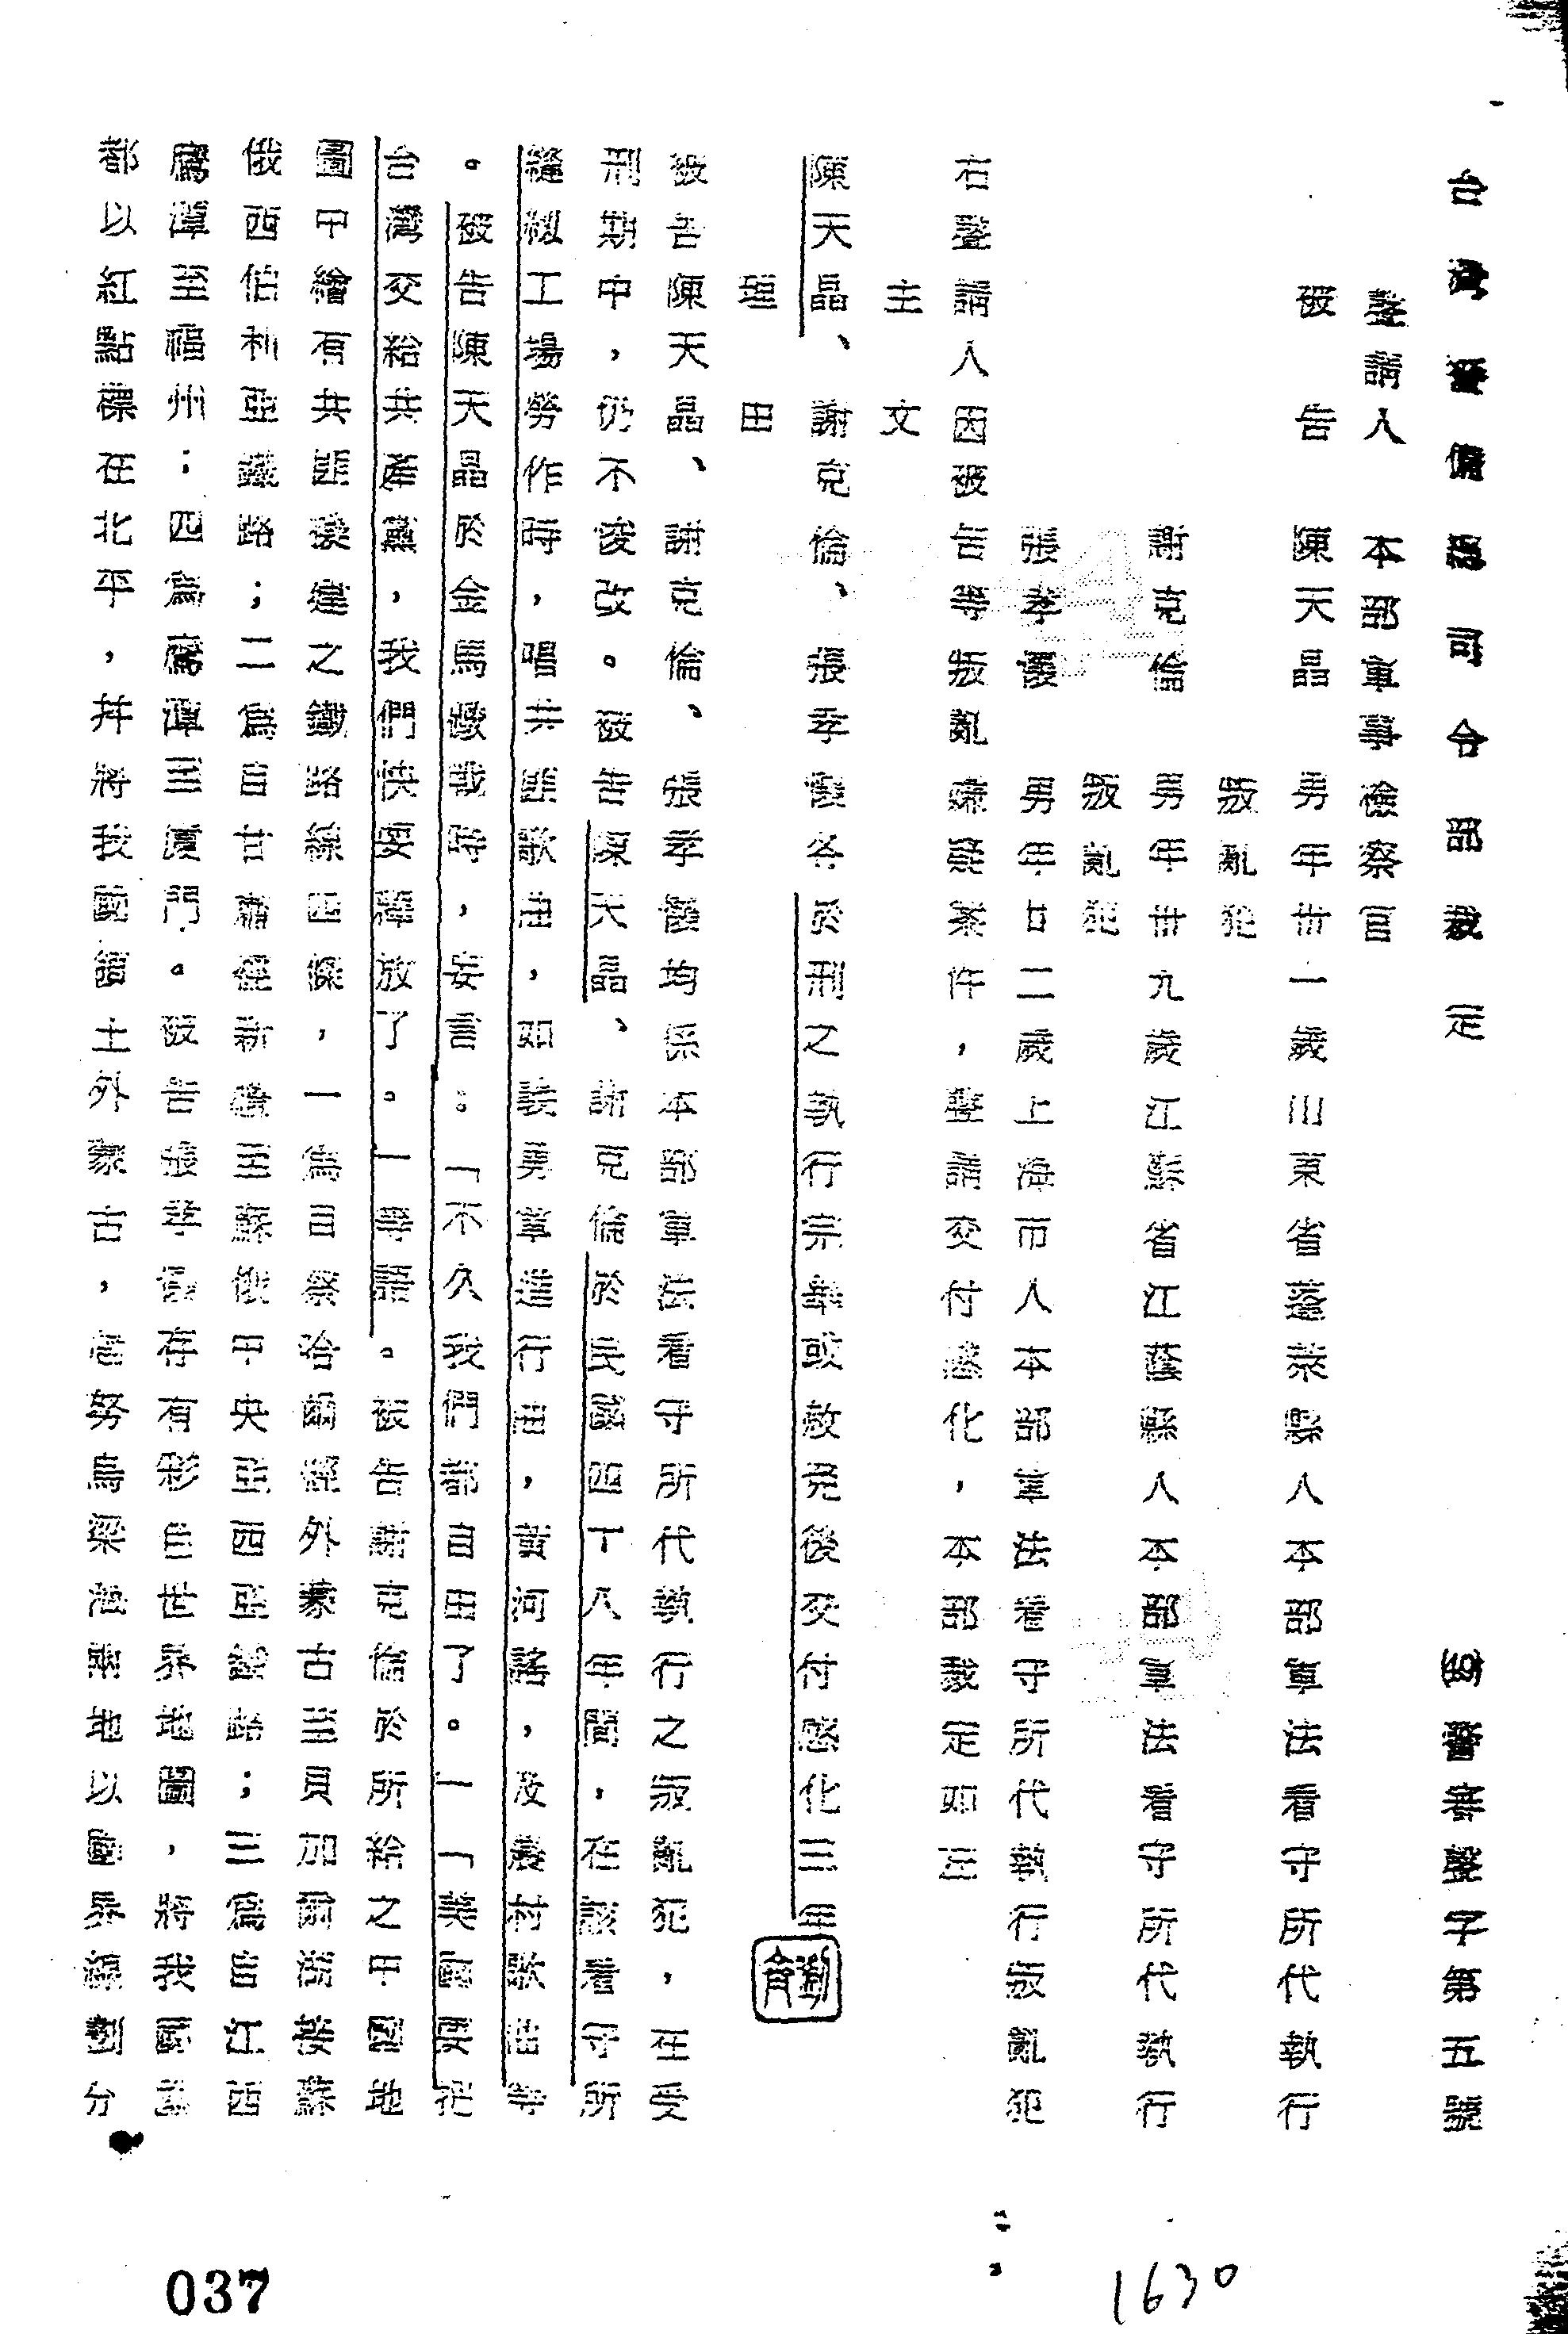 台灣警備總司令部裁定　警審聲字第五號
聲請人　本部軍事檢察官
被告　陳天晶　男年卅一歲山東省蓬萊縣人本部軍法看守所代執行
叛亂犯
謝克倫　男年卅九歲江蘇省江蔭縣人本部軍法看守所代執行
叛亂犯
張孝　男年廿二歲上海市人本部軍法看守所代執行叛亂犯
右聲請人因被告等叛亂嫌疑案件，聲請交付感化，本部裁定如左
主文
陳天晶、謝克倫、張孝　各於刑之執行完畢或赦免後交付感化三年
理由
被告陳天晶、謝克倫、張孝　均係本部軍法看守所代執行之叛亂犯，在受
刑期中，仍不悛改。被告陳天晶、謝克倫於民國四十八年間，在該看守所
縫紉工場勞作時，唱共匪歌曲，如義勇軍進行曲，黃河謠，及農村歌曲等
。被告陳天晶於金馬　戰時，妄言：「不久我們都自由了。」「美國要把
台灣交給共產黨，我們快要釋放了。」等語。被告謝克倫於所繪之中國地
圖中繪有共匪擬建之鐵路線四條，一為自察哈爾經外蒙古至貝加爾湖接蘇
俄西伯利亞鐵路；二為自甘肅經新疆至蘇俄中央亞西亞鐵路；三為自江西
鷹潭至福州；四為鷹潭至廈門。被告張孝　存有彩色世界地圖，將我國首
都以紅點標在北平，并將我國領土外蒙古，唐努烏梁海兩地以國界線劃分
037
1630